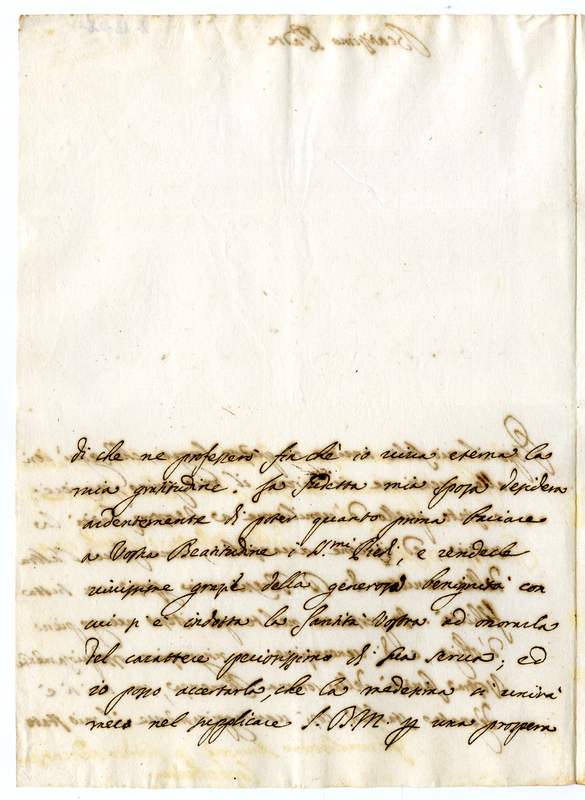 di che ne professerò finchè io viva eterna la
mia gratitudine. La sudetta mia sposa desidera
ardentemente di poter quanto prima baciare
a Vostra Beatitudine i S.mi Piedi, e renderle
vivissime grazie della generosa benignità con
cui si è indotta la Santità Vostra ad onorarla
del carattere speciosissimo di sua serva, ed
io posso accertarla, che la medesima si unirà
meco nel supplicare S.D.M. p una prospera